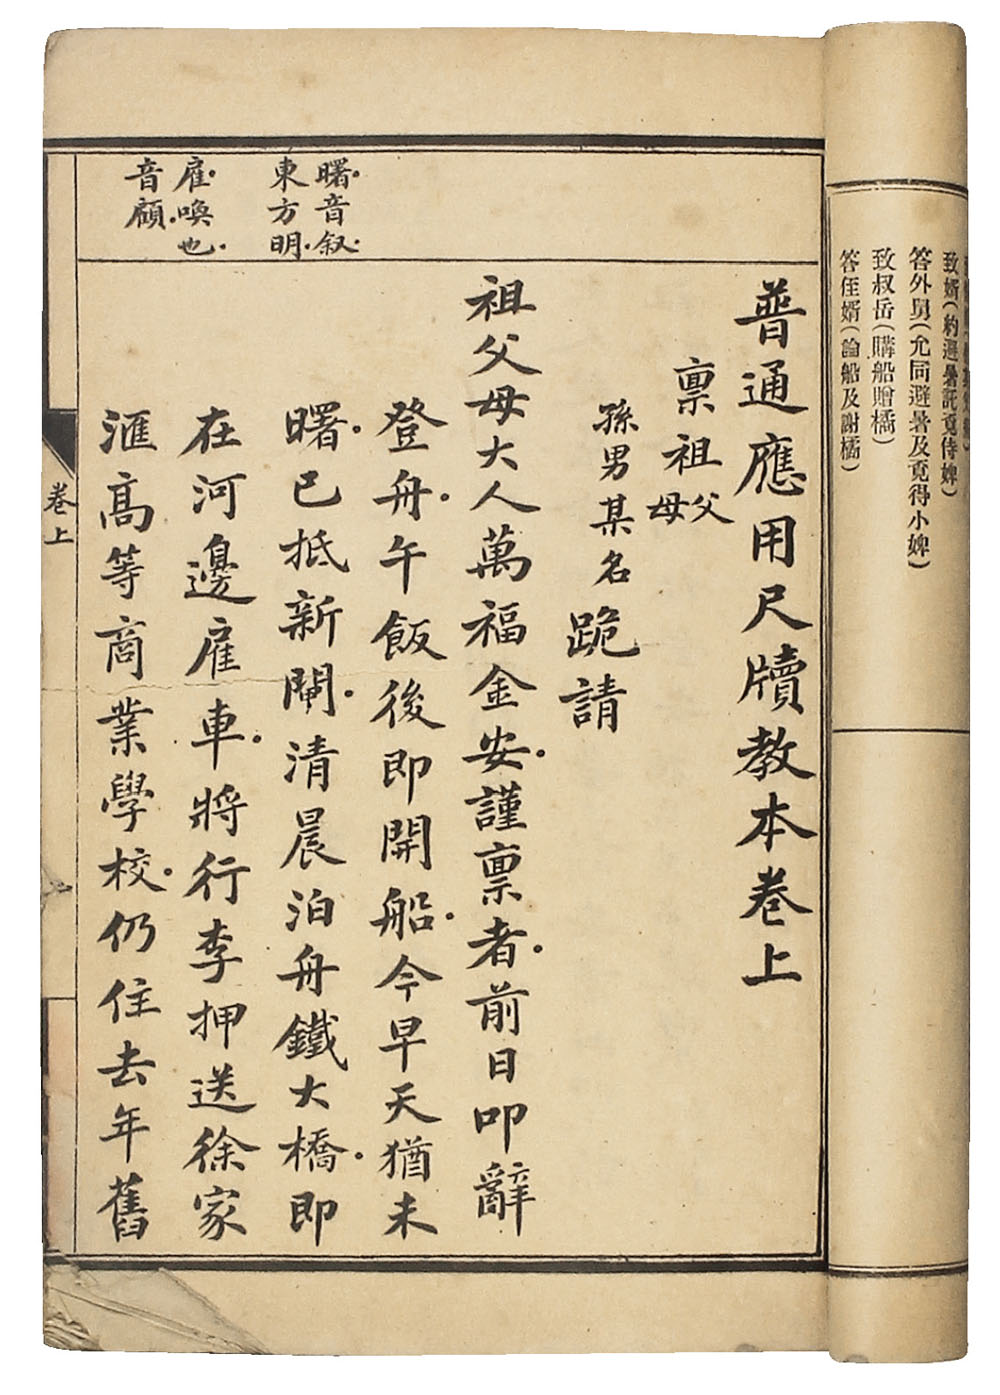 致婿(約避暑託覓侍婢)
答外舅(允同避暑及覓得小婢)
致叔岳(購船贈橘)
答侄婿(論船及謝橘)
曙音叙
東方明
雇喚也
音顧
普通應用尺牘教本卷上
禀祖父母
孫男某名跪請
祖父母大人萬福金安謹禀者前日叩辭
登舟午飯後即開船今早天猶未
曙已抵新閘清晨泊舟鐵大橋即
在河邊雇車將行李押送徐家
滙高等商業學校仍住去年舊
卷上